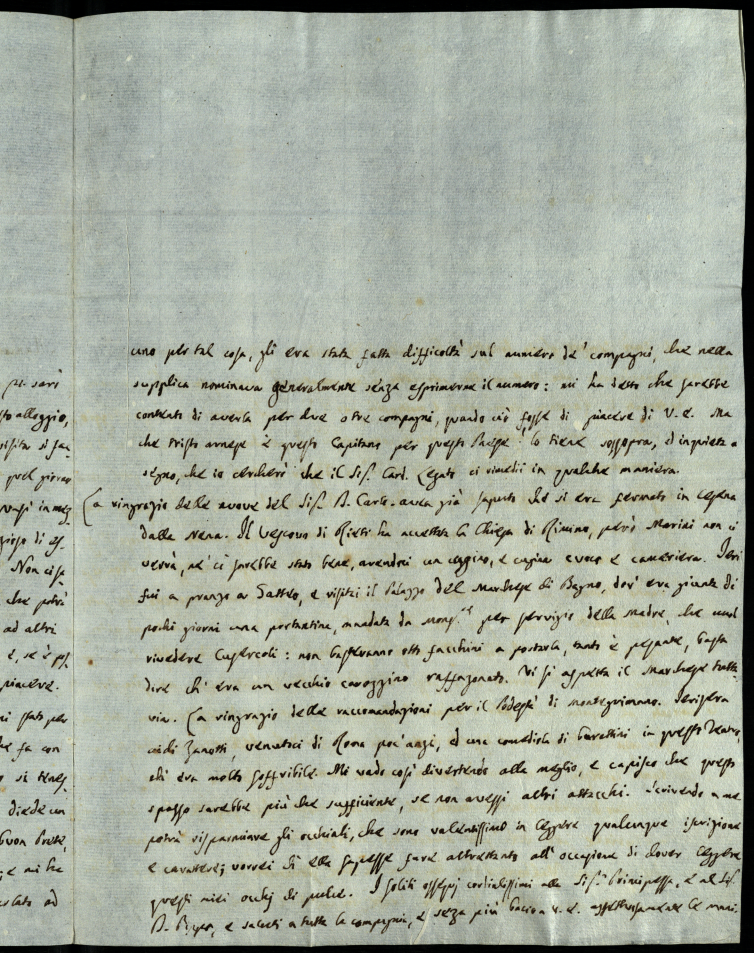 pi sarà
sto alloggio,
quel giorno
Non ci sa
che potrà
ad altri
e, se è
piacere.
ni stato per
fa con
diede un
buon Prete,
e mi ha
ad
uno per tal cosa, gli era stata fatta difficoltà sul numero de' compagni, che nella
supplica nominava generalmente senza esprimerne il numero: mi ha detto che sarebbe
contento di averla per due o tre compagni, quando ciò fosse di piacere di V. E. Ma
che tristo arnese è questo Capitano per questo Paese! lo tiene sossopra, ed inquieta a
segno, che io cercherò che il Sig. Card. Legato ci rimedii in qualche maniera.
La ringrazio delle nuove del Sig. D. Carlo. avea già saputo che si era fermato in Cesena
dalla Nena. Il Vescovo di Rieti ha accettata la Chiesa di Rimino, però Marini non ci
verrà, nè ci sarebbe stato bene, avendoci un cuggino, e cugina cuoco e cameriera. Ieri
fui a pranzo a Gatteo, e visitai il Palazzo del Marchese di Bagno, dov' era giunta di
pochi giorni una portantina, mandata da Mons.r per servizio della Madre, che vuol
rivedere Cusercoli: non bastavano otto facchini a portarla, tanto è pesante, basta
dire ch' era un vecchio carozzino raffazonato. Vi si aspetta il Marchese tutta-
via. La ringrazio delle raccomandazioni per il Podestà di Montegrimano. Ierisera
vidi Zanotti, venutici di Roma poc'anzi, ed una comediola di burattini in questo Teatro,
ch' era molto soffribile. Mi vado così divertendo alla meglio, e capisco che questo
spasso sarebbe più che sufficiente, se non avessi altri attacchi. Scrivendo a me
potrà risparmiare gli occhiali, che sono valentissimo in leggere qualunque iscrizione
e carattere; vorrei ch' ella sapesse fare altrettanto all' occasione di dover leggere
questi miei occhj di pulce. I soliti ossequj cordialissimi alla Sig.ra Principessa, e al Sig.
D. e saluti a tutta la compagnia, e senza più bacio a V. E. affettuosamente le mani.